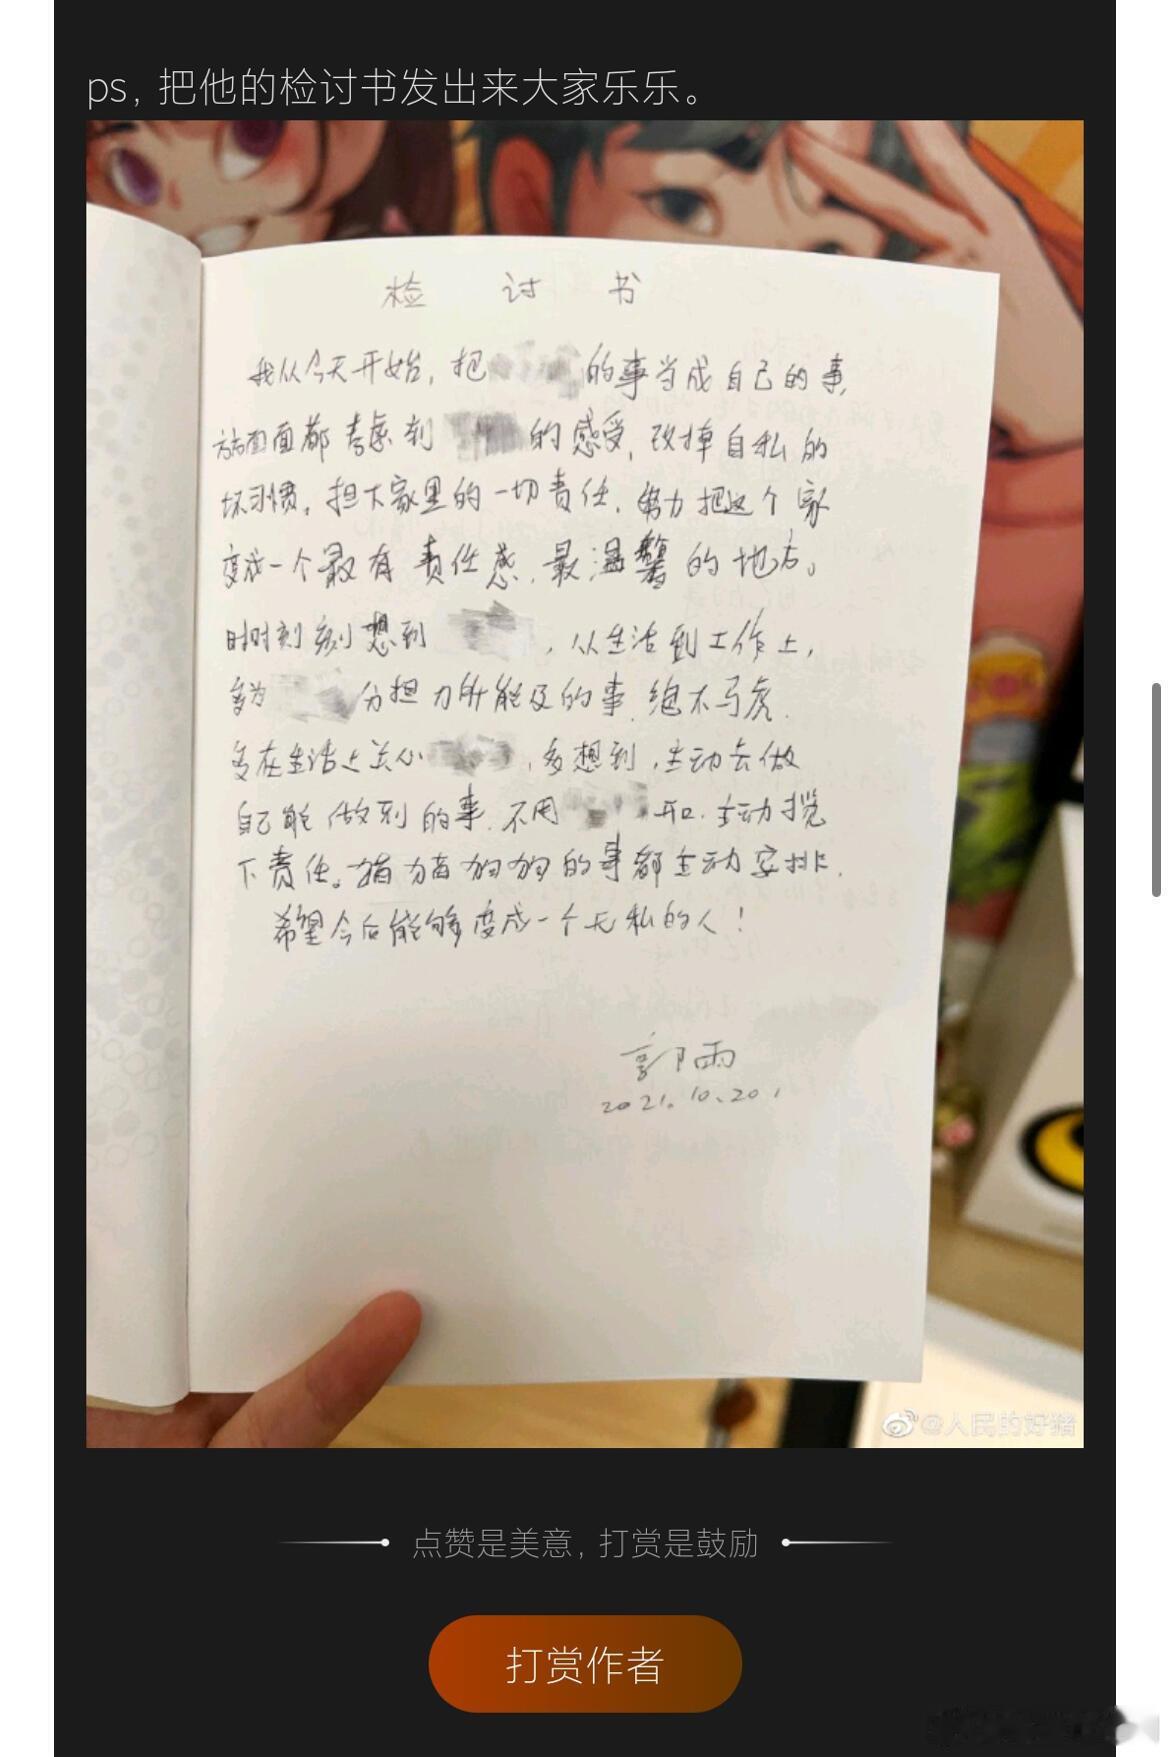 ps，把他的检讨书发出来大家乐乐。
检 讨 书
我从今天开始，把 的事当成自己的事，
方方面面都考虑到 的感受，改掉自私的
坏习惯。担下家里的一切责任，努力把这个家
变成一个最有责任感，最温馨的地方。
时时刻刻想到 ，从生活到工作上，
多为 分担力所能及的事，绝不马虎。
多在生活上关心 ，多想到，主动去做
自己能做到的事，不用 开口，主动揽
下责任。猫猫狗狗的事都主动安排。
希望今后能够变成一个无私的人！
郭雨
2021.10.20，
@人民的好猪
点赞是美意，打赏是鼓励
打赏作者